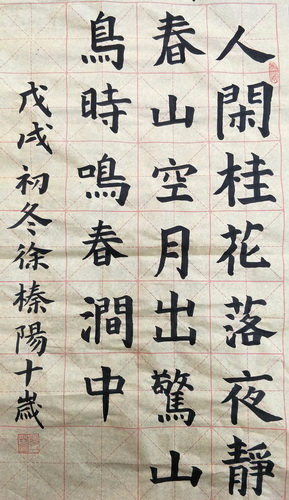 人閑桂花落夜靜
春山空月出驚山
鳥時鳴春澗中
戊戌初冬徐榛陽十歲